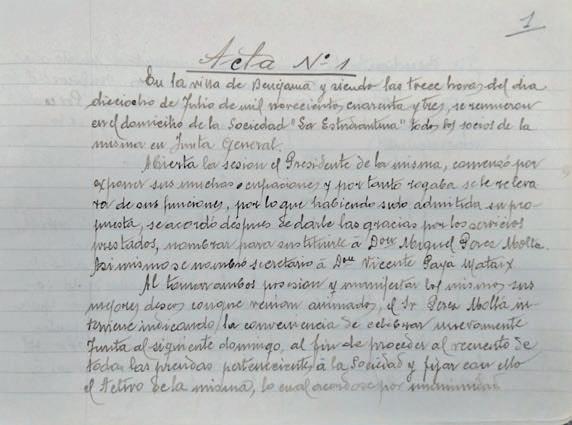 1
Acta Nº 1
En la villa de Benejama y siendo las trece horas del dia
dieciocho de Julio de mil novecientos cuarenta y tres, se reunieron
en el domicilio de la Sociedad "La Estudiantina" todos los socios de la
misma en Junta General.
Abierta la sesion el Presidente de la misma, comenzó por
exponer sus muchas ocupaciones y por tanto rogaba se le releva-
ra de sus funciones, por lo que habiendo sido admitida su pro-
puesta, se acordó despues de darle las gracias por los servicios
prestados, nombrar para sustituirle á Don Miguel Perez Molla.
Asi mismo se nombró secretario á Don Vicente Payá Mataix.
Al tomar ambos posesion y manifestar los mismos sus
mejores deseos conque venian animados, el Sr. Perez Molla in-
terviene indicando la conveniencia de celebrar nuevamente
Junta al siguiente domingo, al fin de proceder al recuento de
todas las prendas pertenecientes á la Sociedad y fijar con ello
el Activo de la misma, lo cual acordose por unanimidad